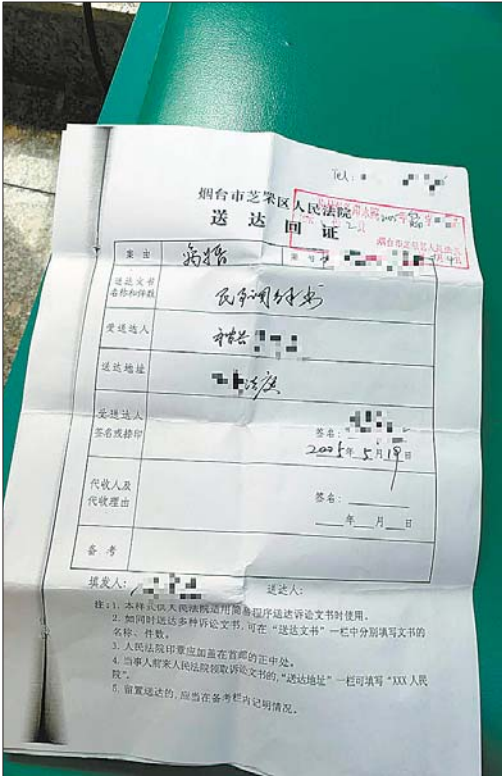 Tel:
烟台市芝罘区人民法院
送达回证
案由 离婚 案号
送达文书名称和件数 民事调解书
受送达人
送达地址 法庭
受送达人签名或捺印 签名:
2005年5月19日
代收人及代收理由 签名:
年 月 日
备考
填发人: 送达人:
注:1. 本样式供人民法院适用简易程序送达诉讼文书时使用。
2. 如同时送达多种诉讼文书,可在“送达文书”一栏中分别填写文书的
名称、件数。
3. 人民法院印章应加盖在首部的正中处。
4. 当事人前来人民法院领取诉讼文书的,“送达地址”一栏可填写“XXX人民
院”。
5. 留置送达的,应当在备考栏内记明情况。